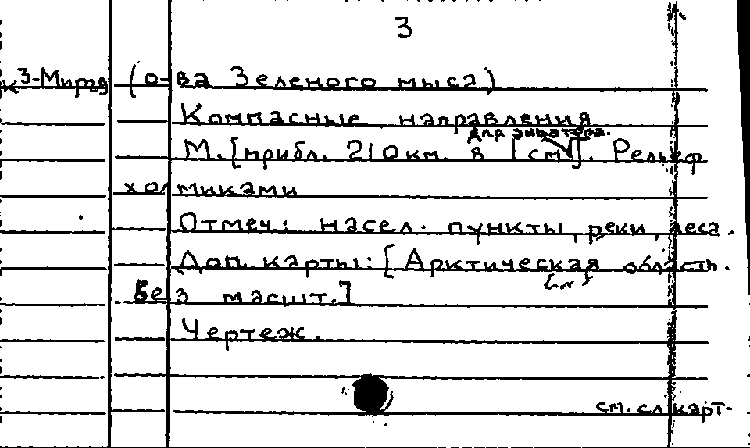 3
(о-ва Зеленого мыса)
Компасные направления
для экватора.
М. [прибл. 210 км. в 1 см]. Рельеф
холмиками
Отмеч: насел. пункты, реки, леса.
Доп. карты: [Арктическая область.
Без масшт.]
Чертеж.
см. сл карт-